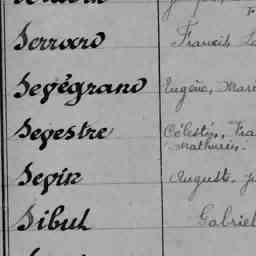 Serrard Francis
Sevégrand Eugène, Marie
Sevestre Célestin, Fra
Mathurin.
Sevin Auguste, J
Sibul Gabriel